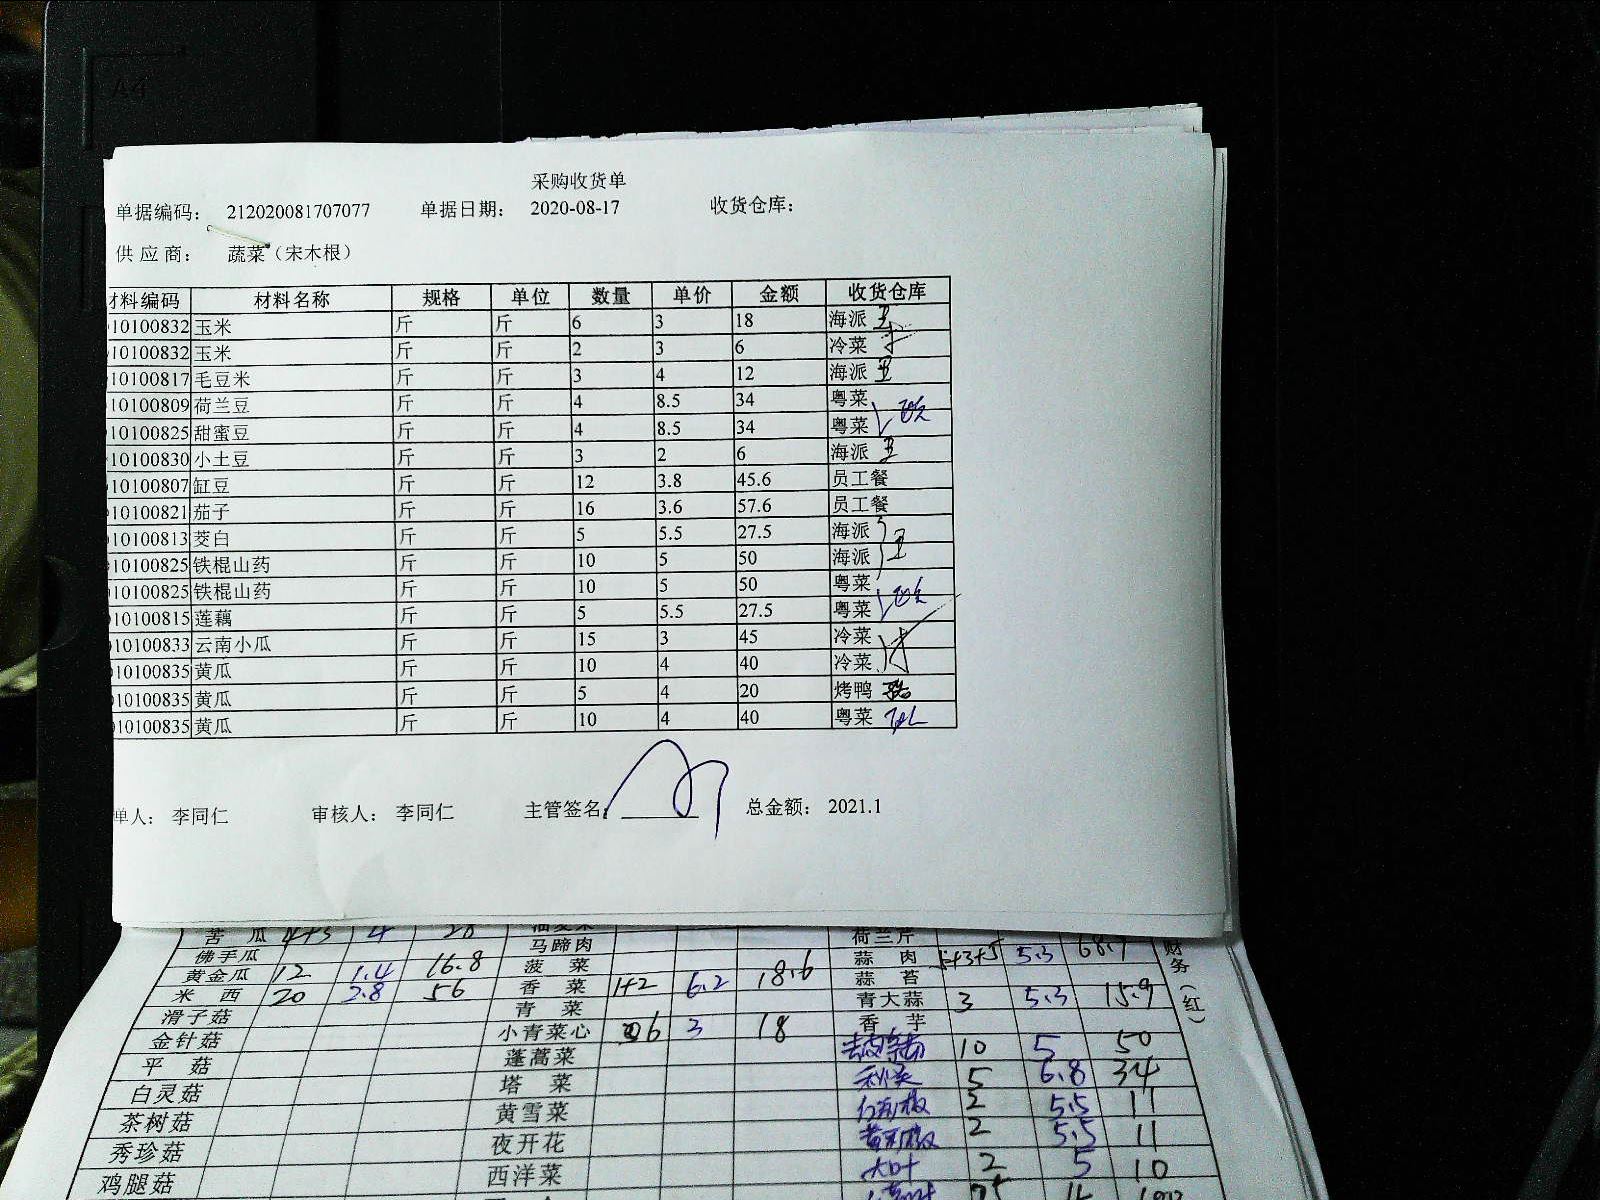 采购收货单
单据编码： 212020081707077 单据日期： 2020-08-17 收货仓库：
供 应 商： 蔬菜（宋木根）
材料编码 材料名称 规格 单位 数量 单价 金额 收货仓库
10100832 玉米 斤 斤 6 3 18 海派
10100832 玉米 斤 斤 2 3 6 冷菜
10100817 毛豆米 斤 斤 3 4 12 海派
10100809 荷兰豆 斤 斤 4 8.5 34 粤菜
10100825 甜蜜豆 斤 斤 4 8.5 34 粤菜
10100830 小土豆 斤 斤 3 2 6 海派
10100807 缸豆 斤 斤 12 3.8 45.6 员工餐
10100821 茄子 斤 斤 16 3.6 57.6 员工餐
10100813 茭白 斤 斤 5 5.5 27.5 海派
10100825 铁棍山药 斤 斤 10 5 50 海派
10100825 铁棍山药 斤 斤 10 5 50 粤菜
10100815 莲藕 斤 斤 5 5.5 27.5 粤菜
10100833 云南小瓜 斤 斤 15 3 45 冷菜
10100835 黄瓜 斤 斤 10 4 40 冷菜
10100835 黄瓜 斤 斤 5 4 20 烤鸭
10100835 黄瓜 斤 斤 10 4 40 粤菜
单人： 李同仁 审核人： 李同仁 主管签名： 总金额： 2021.1
苦 瓜 4+3 4 28 荷兰芹
佛手瓜 马蹄肉 蒜 肉 5.3 68.9
黄金瓜 12 1.4 16.8 菠 菜 蒜 苔
米 西 20 2.8 56 香 菜 1+2 6.2 18.6 青大蒜 3 5.3 15.9
滑子菇 青 菜 香 芋
金针菇 小青菜心 6 3 18 10 5 50
平 菇 蓬蒿菜 秋葵 5 6.8 34
白灵菇 塔 菜 2 5.5 11
茶树菇 黄雪菜 2 5.5 11
秀珍菇 夜开花 大叶 2 5 10
鸡腿菇 西洋菜
财务（红）